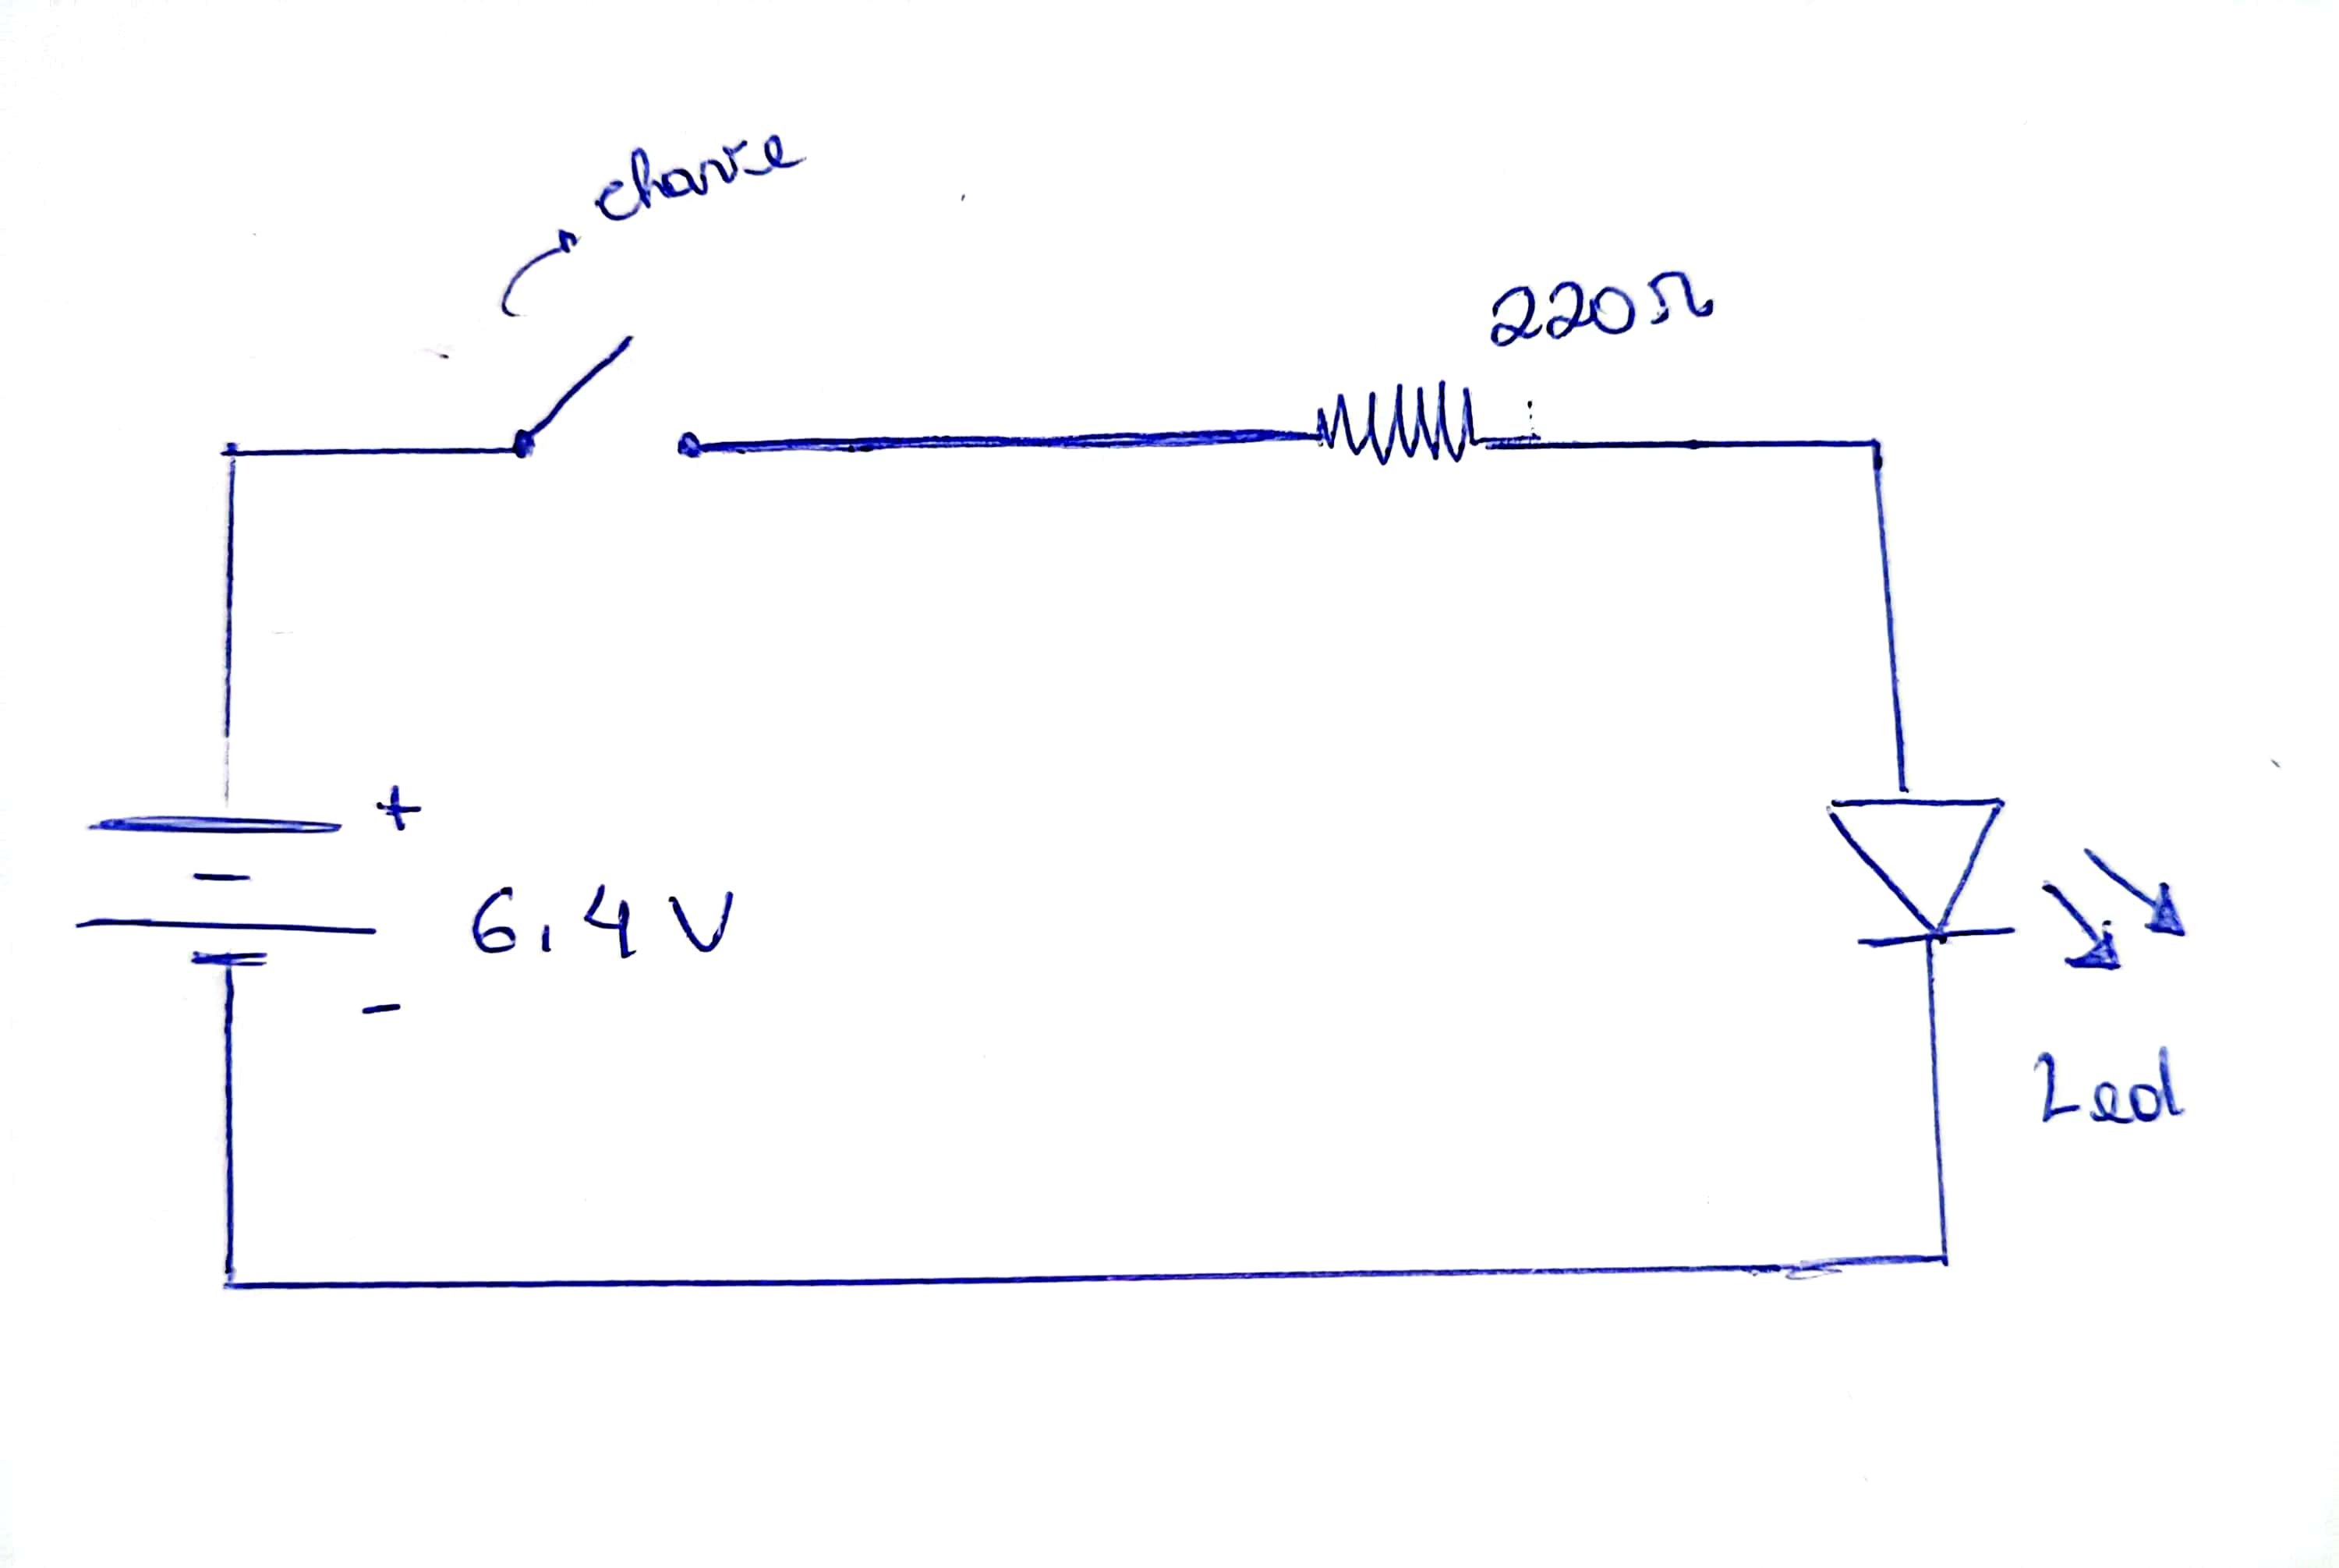 chave
220Ω
+
6,4 V
-
Led